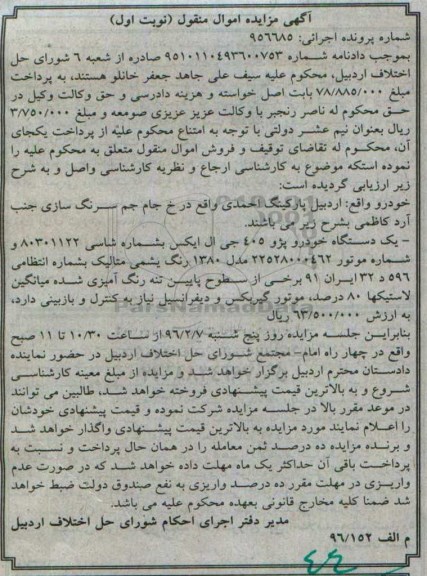 آگهی مزایده اموال منقول (نوبت اول)
شماره پرونده اجرائی: ۹۵۶۶۸۵
بموجب دادنامه شماره ۹۵۱۰۱۱۰۴۹۳۶۰۰۷۵۳ صادره از شعبه ۶ شورای حل
اختلاف اردبیل، محکوم علیه سیف علی جاهد جعفر خانلو هستند، به پرداخت
مبلغ ۷۸/۸۸۵/۰۰۰ بابت اصل خواسته و هزینه دادرسی و حق وکالت وکیل در
حق محکوم له ناصر رنجبر با وکالت عزیز عزیزی صومعه و مبلغ ۳/۷۵۰/۰۰۰
ریال بعنوان نیم عشر دولتی با توجه به امتناع محکوم علیه از پرداخت یکجای
آن، محکوم له تقاضای توقیف و فروش اموال منقول متعلق به محکوم علیه را
نموده استکه موضوع به کارشناسی ارجاع و نظریه کارشناسی واصل و به شرح
زیر ارزیابی گردیده است:
خودرو واقع: اردبیل پارکینگ احمدی واقع در خ جام جم سرنگ سازی جنب
آرد کاظمی بشرح زیر می باشند.
- یک دستگاه خودرو پژو ۴۰۵ جی ال ایکس بشماره شاسی ۸۰۳۰۱۱۲۲ و
شماره موتور ۲۲۵۲۸۰۰۰۴۶۲ مدل ۱۳۸۰ رنگ یشمی متالیک بشماره انتظامی
۵۹۶ د ۳۲ ایران ۹۱ برخی از سطوح پایین تنه رنگ آمیزی شده میانگین
لاستیکها ۸۰ درصد، موتور گیربکس و دیفرانسیل نیاز به کنترل و بازبینی دارد،
به ارزش ۶۳/۵۰۰/۰۰۰ ریال
بنابراین جلسه مزایده روز پنج شنبه ۹۶/۲/۷ از ساعت ۱۰/۳۰ تا ۱۱ صبح
واقع در چهار راه امام- مجتمع شورای حل اختلاف اردبیل در حضور نماینده
دادستان محترم اردبیل برگزار خواهد شد و مزایده از مبلغ معینه کارشناسی
شروع و به بالاترین قیمت پیشنهادی فروخته خواهد شد، طالبین می توانند
در موعد مقرر بالا در جلسه مزایده شرکت نموده و قیمت پیشنهادی خودشان
را اعلام نمایند مورد مزایده به بالاترین قیمت پیشنهادی واگذار خواهد شد
و برنده مزایده ده درصد ثمن معامله را در همان حال پرداخت و نسبت به
پرداخت باقی آن حداکثر یک ماه مهلت داده خواهد شد که در صورت عدم
واریزی در مهلت مقرر ده درصد واریزی به نفع صندوق دولت ضبط خواهد
شد ضمنا کلیه مخارج قانونی بعهده محکوم علیه می باشد.
مدیر دفتر اجرای احکام شورای حل اختلاف اردبیل
م الف ۹۶/۱۵۲